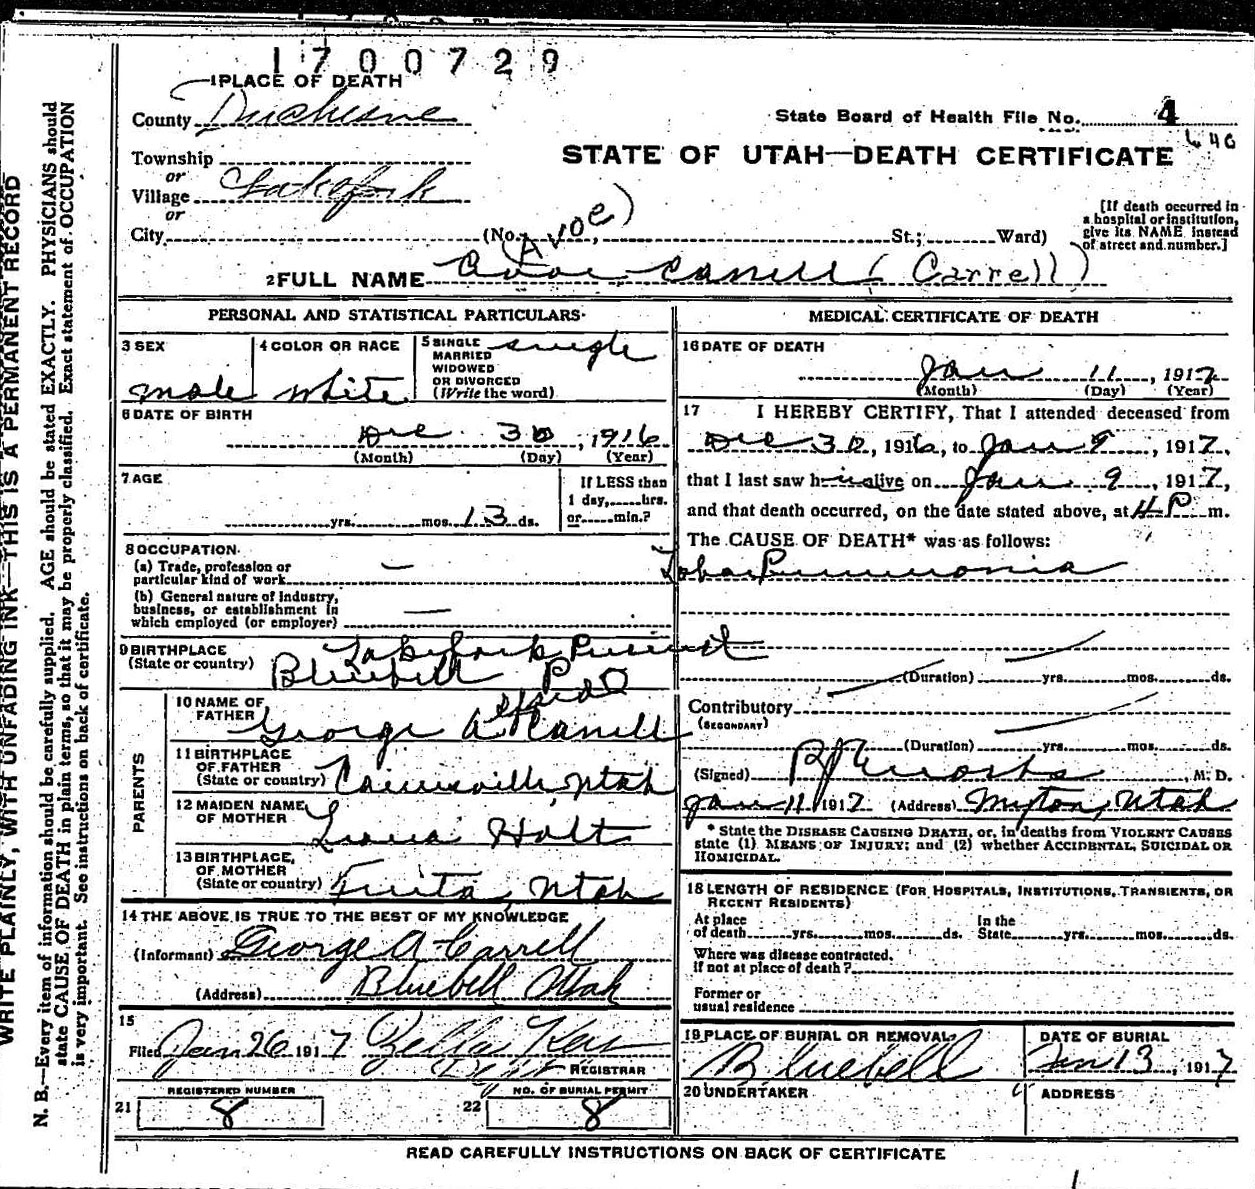 1700729
1 PLACE OF DEATH
County Duchesne
State Board of Health File No. 4
STATE OF UTAH—DEATH CERTIFICATE
Township
or
Village Lakefork
or
City (No. St.; Ward)
[If death occurred in
a hospital or institution,
give its NAME instead
of street and number.]
(Avoe)
2 FULL NAME Avoe Carrell (Carrell)
PERSONAL AND STATISTICAL PARTICULARS
3 SEX
male
4 COLOR OR RACE
white
5 SINGLE
MARRIED
WIDOWED
OR DIVORCED
(Write the word)
single
6 DATE OF BIRTH
Dec 30, 1916
(Month) (Day) (Year)
7 AGE
yrs. mos. 13 ds.
If LESS than
1 day, hrs.
or min.?
8 OCCUPATION
(a) Trade, profession or
particular kind of work —
(b) General nature of industry,
business, or establishment in
which employed (or employer) —
9 BIRTHPLACE
(State or country)
Lakefork
Bluebell
PARENTS
10 NAME OF
FATHER
George A Carrell
11 BIRTHPLACE
OF FATHER
(State or country) Cainesville, Utah
12 MAIDEN NAME
OF MOTHER
Holt
13 BIRTHPLACE,
OF MOTHER
(State or country) Fruita, Utah
14 THE ABOVE IS TRUE TO THE BEST OF MY KNOWLEDGE
(Informant) George A Carrell
(Address) Bluebell Utah
15
Filed Jan 26 1917 Zella
REGISTRAR
REGISTERED NUMBER
21 8
NO. OF BURIAL PERMIT
22 8
MEDICAL CERTIFICATE OF DEATH
16 DATE OF DEATH
Jan 11, 1917
(Month) (Day) (Year)
17 I HEREBY CERTIFY, That I attended deceased from
Dec 30, 1916, to Jan 9, 1917,
that I last saw him alive on Jan 9, 1917,
and that death occurred, on the date stated above, at 4 P m.
The CAUSE OF DEATH* was as follows:
Lobar Pneumonia
(Duration) yrs. mos. ds.
Contributory
(SECONDARY)
(Duration) yrs. mos. ds.
(Signed) M. D.
Jan 11 1917 (Address) Myton, Utah
* State the DISEASE CAUSING DEATH, or, in deaths from VIOLENT CAUSES
state (1) MEANS OF INJURY; and (2) whether ACCIDENTAL, SUICIDAL OR
HOMICIDAL.
18 LENGTH OF RESIDENCE (FOR HOSPITALS, INSTITUTIONS, TRANSIENTS, OR
RECENT RESIDENTS)
At place
of death yrs. mos. ds.
In the
State yrs. mos. ds.
Where was disease contracted,
if not at place of death?
Former or
usual residence
19 PLACE OF BURIAL OR REMOVAL
Bluebell
DATE OF BURIAL
Jan 13, 1917
20 UNDERTAKER
ADDRESS
READ CAREFULLY INSTRUCTIONS ON BACK OF CERTIFICATE
WRITE PLAINLY, WITH UNFADING INK—THIS IS A PERMANENT RECORD
N. B.—Every item of information should be carefully supplied. AGE should be stated EXACTLY. PHYSICIANS should
state CAUSE OF DEATH in plain terms, so that it may be properly classified. Exact statement of OCCUPATION
is very important. See instructions on back of certificate.